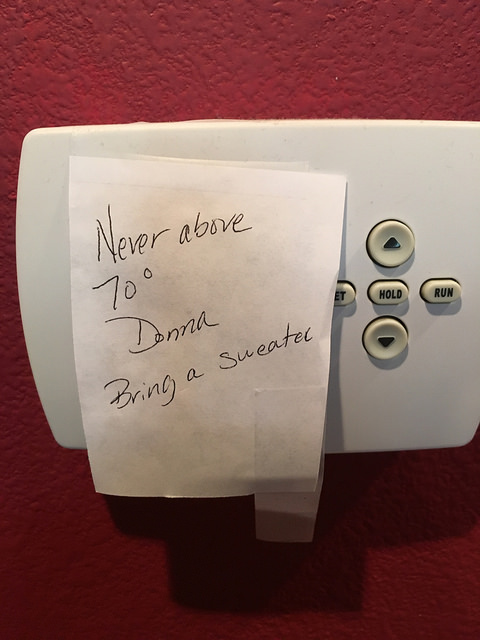 Never above
70°
Donna
Bring a sweater
ET
HOLD
RUN